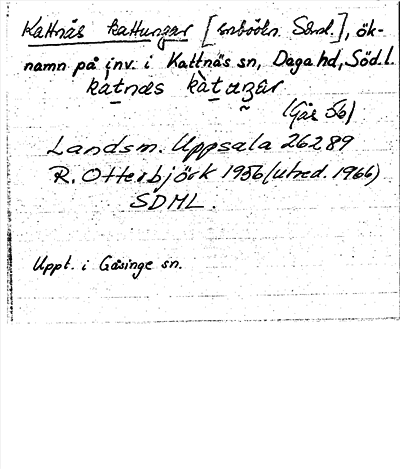 Kattnäs kattungar [snböln. Sörml.], ök-
namn på inv. i Kattnäs sn, Daga hd, Söd. l.
kàtnæs kàtuŋar
(Gås 56)
Landsm. Uppsala 26289
R. Otterbjörk 1956 (utred. 1966)
SDML.
Uppt. i Gåsinge sn.